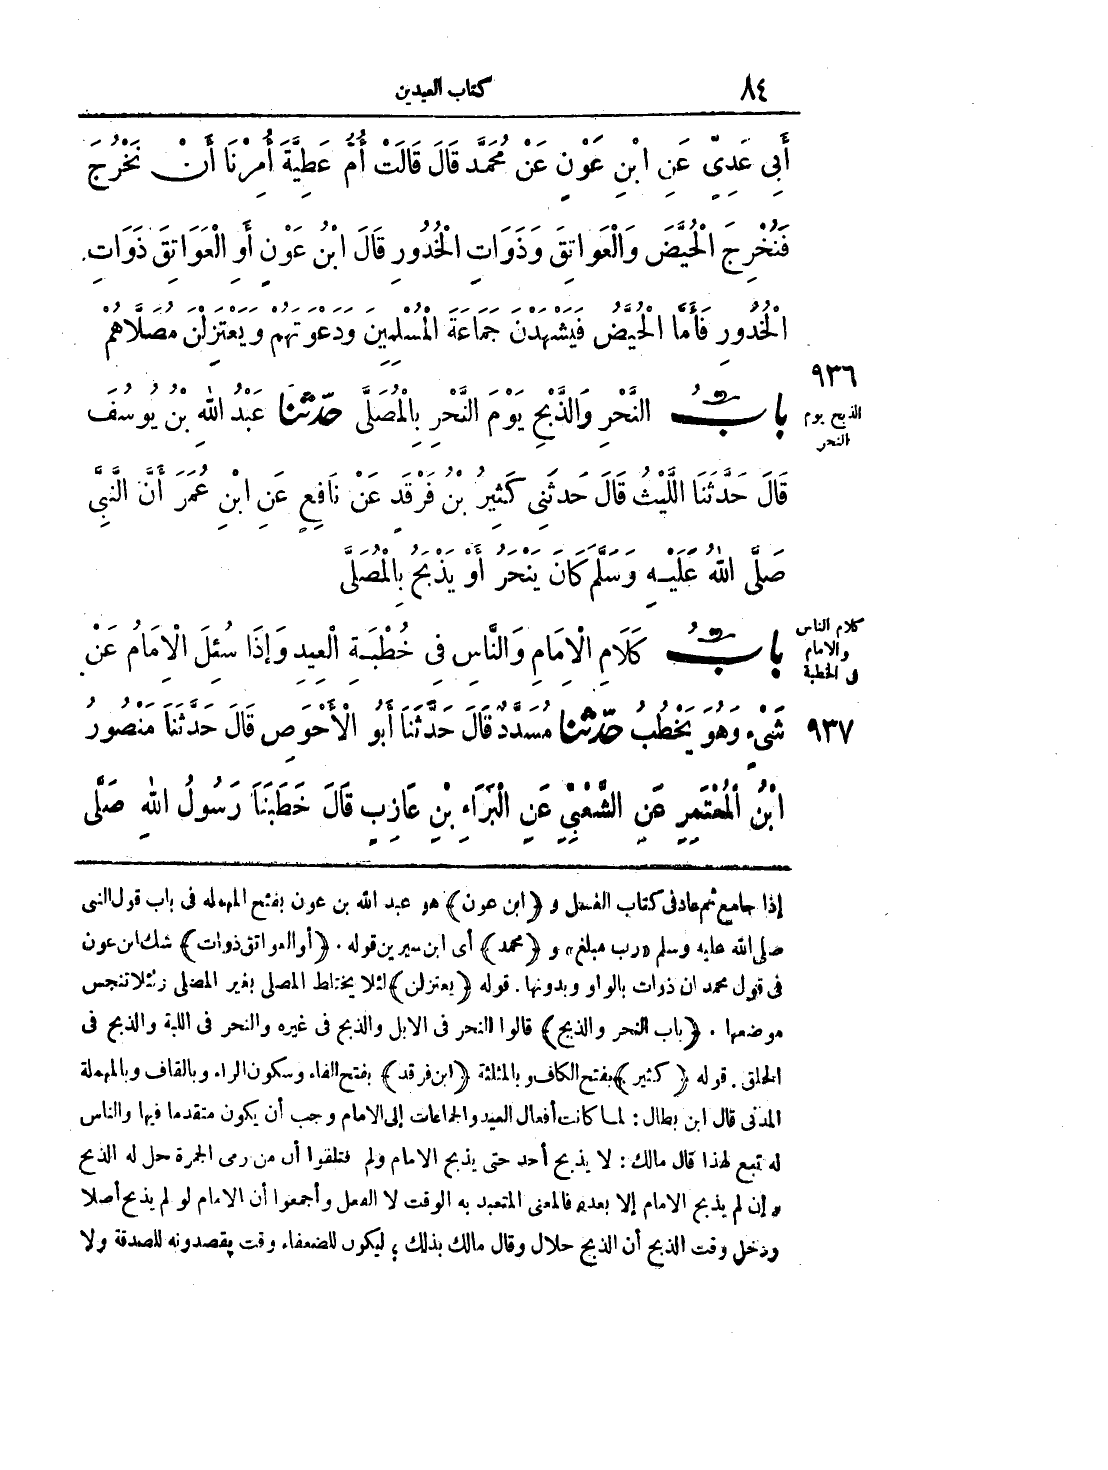 ٨٤ كتاب العيدين
أَبِي عَدِيٍّ عَنِ ابْنِ عَوْنٍ عَنْ مُحَمَّد قَالَ قَالَتْ أُمُّ عَطِيَّةَ أُمِرْنَا أَنْ نَخْرُجَ
فَنُخْرِجَ الْحُيَّضَ وَالْعَوَاتِقَ وَذَوَاتِ الْخُدُورِ قَالَ ابْنُ عَوْنٍ أَوِ الْعَوَاتِقَ ذَوَاتِ
الْخُدُورِ فَأَمَّا الْحُيَّضُ فَيَشْهَدْنَ جَمَاعَةَ الْمُسْلِمِينَ وَدَعْوَتَهُمْ وَيَعْتَزِلْنَ مُصَلَّاهُمْ
٩٣٦
الذبح يوم
النحر
بابُ النَّحْرِ وَالذَّبْحِ يَوْمَ النَّحْرِ بِالْمُصَلَّى حَدَّثَنَا عَبْدُ اللهِ بْنُ يُوسُفَ
قَالَ حَدَّثَنَا اللَّيْثُ قَالَ حَدَثَنِى كَثِيرُ بْنُ فَرْقَدٍ عَنْ نَافِعٍ عَنِ ابْنِ عُمَرَ أَنَّ النَّبِىَّ
صَلَّى اللهُ عَلَيْهِ وَسَلَّمَ كَانَ يَنْحَرُ أَوْ يَذْبَحُ بِالْمُصَلَّى
كلام الناس
والامام
فى الخطبة
بابُ كَلَامِ الْإِمَامِ وَالنَّاسِ فِى خُطْبَةِ الْعِيدِ وَإِذَا سُئِلَ الْإِمَامُ عَنْ
٩٣٧
شَىْءٍ وَهُوَ يَخْطُبُ حَدَّثَنَا مُسَدَّدٌ قَالَ حَدَّثَنَا أَبُو الْأَحْوَصِ قَالَ حَدَّثَنَا مَنْصُورُ
ابْنُ الْمُعْتَمِرِ عَنِ الشَّعْبِيِّ عَنِ الْبَرَاءِ بْنِ عَازِبٍ قَالَ خَطَبَنَا رَسُولُ اللهِ صَلَّى
إذا جامع ثم عاد فى كتاب الغسل و (ابن عون) هو عبد الله بن عون بفتح المهملة فى باب قول النبى
صلى الله عليه وسلم «رب مبلغ» و (محمد) أى ابن سيرين قوله . (أو العواتق ذوات) شك ابن عون
فى قول محمد ان ذوات بالواو وبدونها . قوله (يعتزلن) لئلا يختلط المصلى بغير المصلى ولئلا تنجس
موضعها . (باب النحر والذبح) قالوا النحر فى الابل والذبح فى غيره والنحر فى اللبة والذبح فى
الحلق . قوله (كثير) بفتح الكاف وبالمثلثة (ابن فرقد) بفتح الفاء وسكون الراء وبالقاف وبالمهملة
المدنى قال ابن بطال : لما كانت أفعال العيد والجماعات إلى الامام وجب أن يكون متقدما فيها والناس
له تبع لهذا قال مالك : لا يذبح أحد حتى يذبح الامام ولم فتلقوا أن من رمى الجمرة حل له الذبح
وإن لم يذبح الامام إلا بعده فالمعنى المتعبد به الوقت لا الفعل وأجمعوا أن الامام لو لم يذبح أصلا
ودخل وقت الذبح أن الذبح حلال وقال مالك بذلك ، ليكون للضعفاء وقت يقصدونه للصدقة ولا